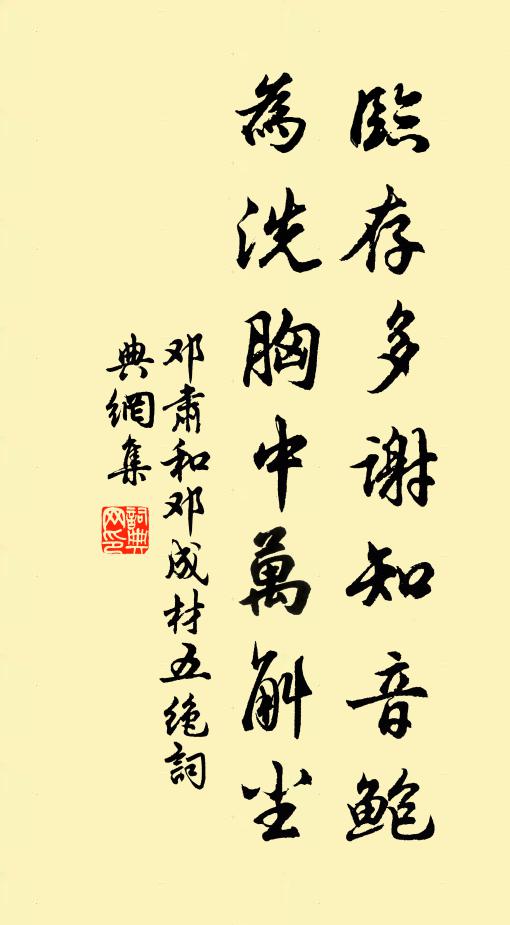 臨存多謝知音鲍
為洗胸中萬斛尘
邓肅和邓成材五绝詞
典網集
詞典网印